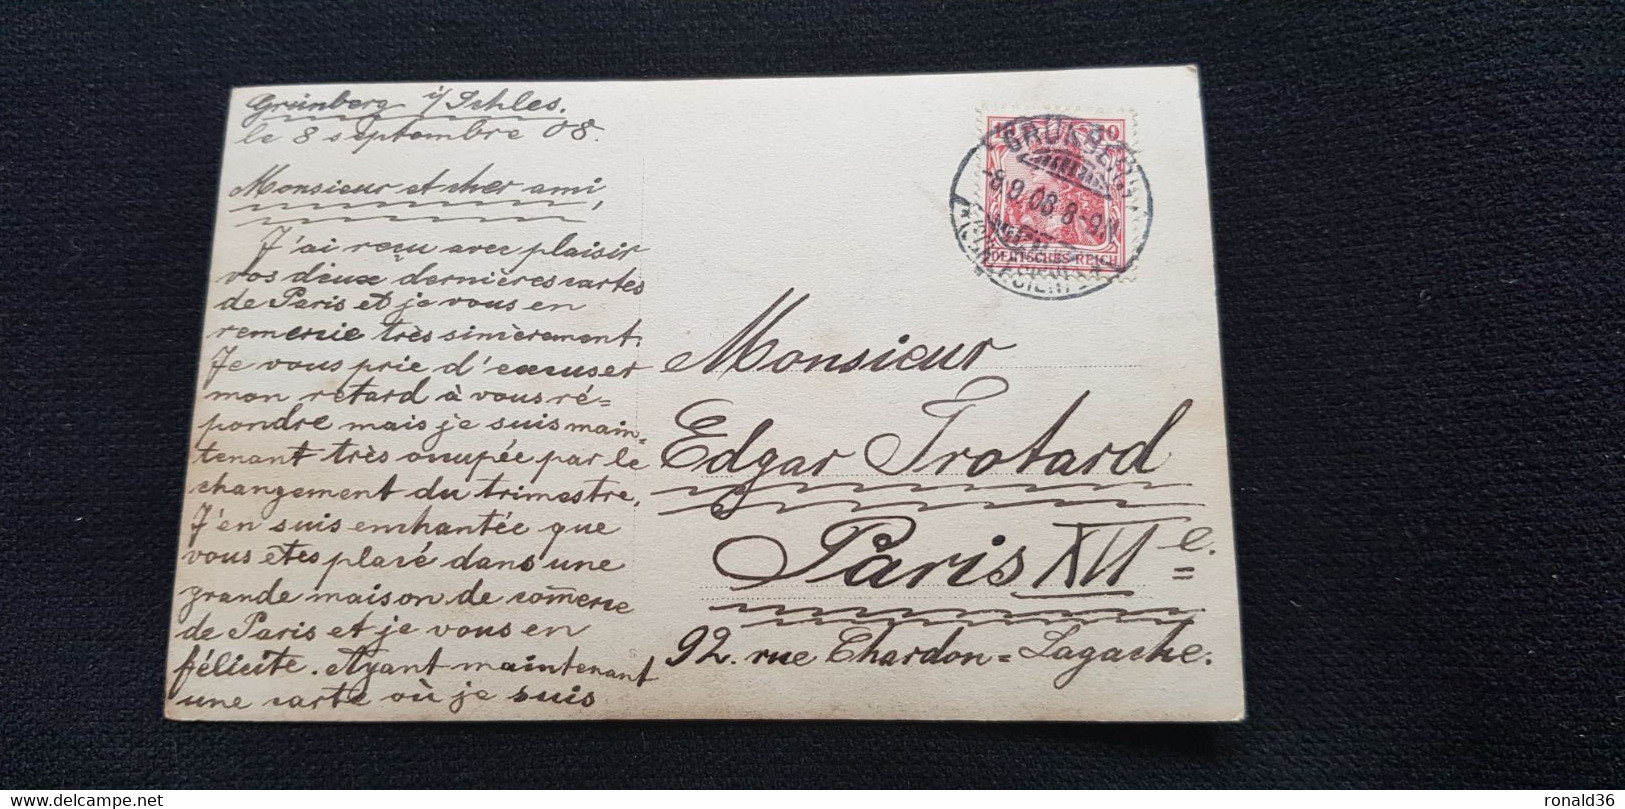 Grünberg i/Schles.
le 8 septembre 08.
Monsieur et cher ami,
J'ai reçu avec plaisir
vos deux dernières cartes
de Paris et je vous en
remercie très sincèrement.
Je vous prie d'excuser
mon retard à vous ré=
pondre mais je suis main=
tenant très occupée par le
changement du trimestre.
J'en suis enchantée que
vous etes placé dans une
grande maison de com̅erce
de Paris et je vous en
félicite. Ayant maintenant
une carte où je suis
10 10
GRÜNBERG
-8.9.08.8-9.V.
DEUTSCHES REICH
Monsieur
Edgar Trotard
Paris XVIe.
92. rue Chardon=Lagache.
delcampe.net
ronald36